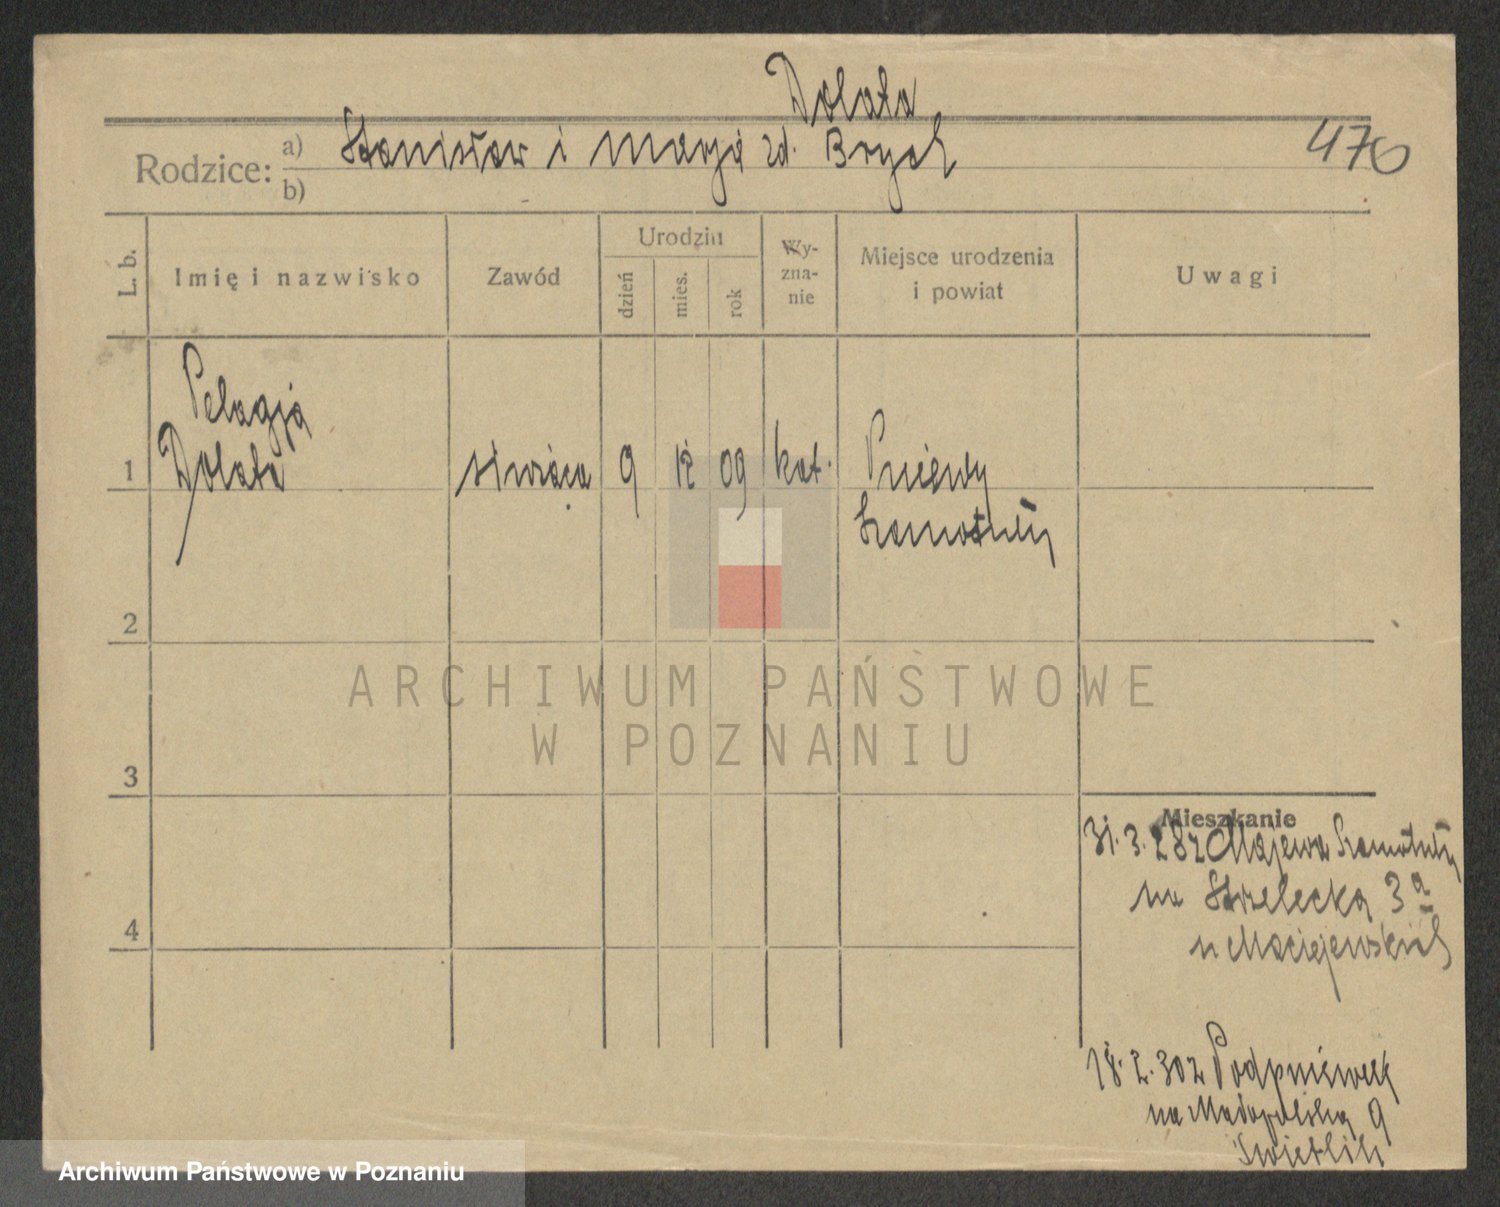 Dolata
Rodzice: a) Stanisław i Marja zd. Brych
b)
476
L. b.
Imię i nazwisko
Zawód
Urodzin
dzień
mies.
rok
Wy-
zna-
nie
Miejsce urodzenia
i powiat
Uwagi
Pelagja
1 Dolata służąca 9 12 09 kat. Pniewy
Szamotuły
2
ARCHIWUM PAŃSTWOWE
W POZNANIU
3
Mieszkanie
31.3.28 z Majewa Szamotuły
na Strzelecką 3a
u Maciejewskich
4
18.2.30 z Podpniewek
na Małopolską 9
Świetlik
Archiwum Państwowe w Poznaniu